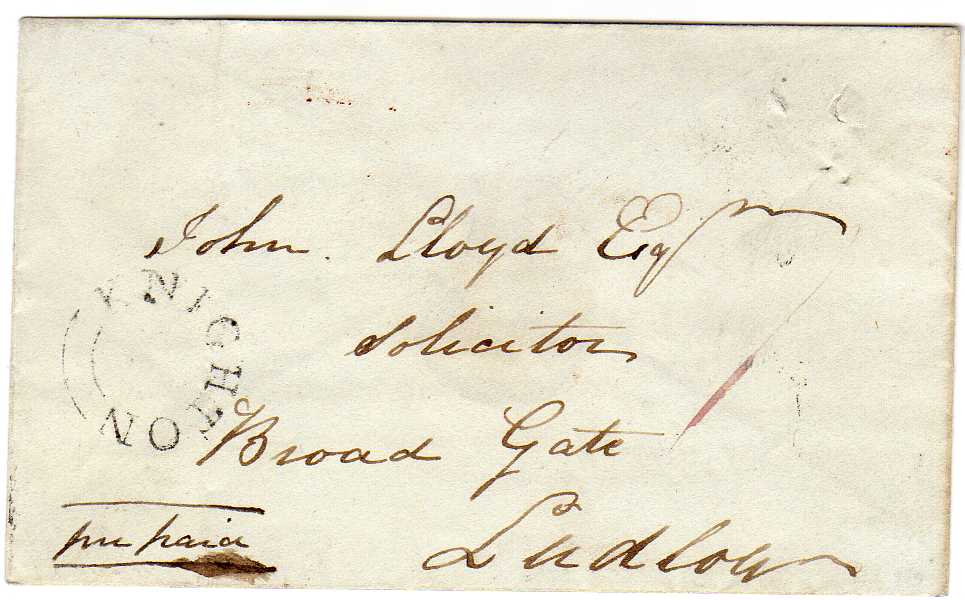 John Lloyd Esqr
Solicitor
Broad Gate
Ludlow
pre paid
KNIGHTON